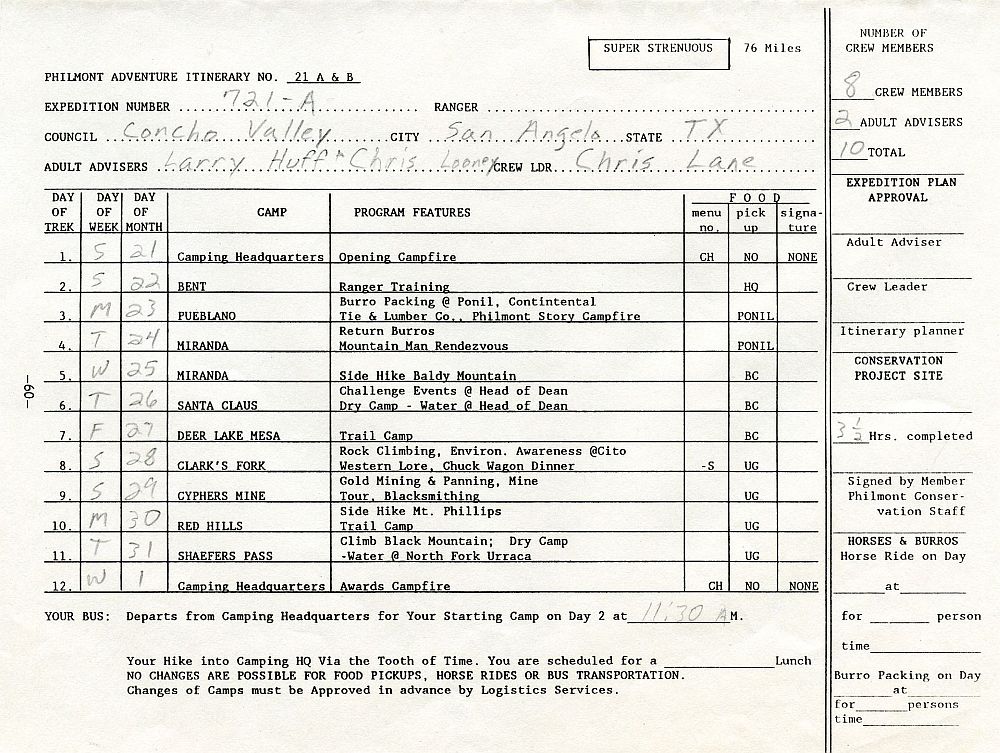 SUPER STRENUOUS 76 Miles
PHILMONT ADVENTURE ITINERARY NO. 21 A & B
EXPEDITION NUMBER 721-A RANGER
COUNCIL Concho Valley CITY San Angelo STATE TX
ADULT ADVISERS Larry Huff + Chris Looney CREW LDR. Chris Lane
DAY OF TREK DAY OF WEEK DAY OF MONTH CAMP PROGRAM FEATURES FOOD menu no. pick up signa-ture
1. S 21 Camping Headquarters Opening Campfire CH NO NONE
2. S 22 BENT Ranger Training HQ
Burro Packing @ Ponil, Contintental
3. M 23 PUEBLANO Tie & Lumber Co., Philmont Story Campfire PONIL
Return Burros
4. T 24 MIRANDA Mountain Man Rendezvous PONIL
5. W 25 MIRANDA Side Hike Baldy Mountain BC
Challenge Events @ Head of Dean
6. T 26 SANTA CLAUS Dry Camp - Water @ Head of Dean BC
7. F 27 DEER LAKE MESA Trail Camp BC
Rock Climbing, Environ. Awareness @Cito
8. S 28 CLARK'S FORK Western Lore, Chuck Wagon Dinner -S UG
Gold Mining & Panning, Mine
9. S 29 CYPHERS MINE Tour, Blacksmithing UG
Side Hike Mt. Phillips
10. M 30 RED HILLS Trail Camp UG
Climb Black Mountain; Dry Camp
11. T 31 SHAEFERS PASS -Water @ North Fork Urraca UG
12. W 1 Camping Headquarters Awards Campfire CH NO NONE
YOUR BUS: Departs from Camping Headquarters for Your Starting Camp on Day 2 at 11:30 AM.
Your Hike into Camping HQ Via the Tooth of Time. You are scheduled for a Lunch
NO CHANGES ARE POSSIBLE FOR FOOD PICKUPS, HORSE RIDES OR BUS TRANSPORTATION.
Changes of Camps must be Approved in advance by Logistics Services.
-60-
NUMBER OF
CREW MEMBERS
8 CREW MEMBERS
2 ADULT ADVISERS
10 TOTAL
EXPEDITION PLAN
APPROVAL
Adult Adviser
Crew Leader
Itinerary planner
CONSERVATION
PROJECT SITE
3 1/2 Hrs. completed
Signed by Member
Philmont Conser-
vation Staff
HORSES & BURROS
Horse Ride on Day
at
for person
time
Burro Packing on Day
at
for persons
time